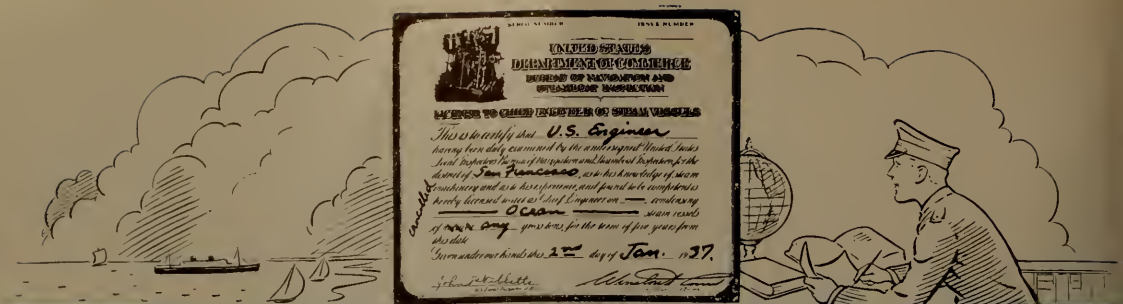 SERIAL NUMBER ISSUE NUMBER
UNITED STATES
DEPARTMENT OF COMMERCE
BUREAU OF NAVIGATION AND
STEAMBOAT INSPECTION
LICENSE TO CHIEF ENGINEER OF STEAM VESSELS
This is to certify that U.S. Engineer
having been duly examined by the undersigned United States
Local Inspectors, Bureau of Navigation and Steamboat Inspection, for the
district of San Francisco, as to his knowledge of steam
machinery and as to his experience, and found to be competent is
hereby licensed to act as Chief Engineer on condensing
Ocean steam vessels
of any gross tons, for the term of five years from
this date
Given under our hands this 2nd day of Jan. 1937.
cancelled